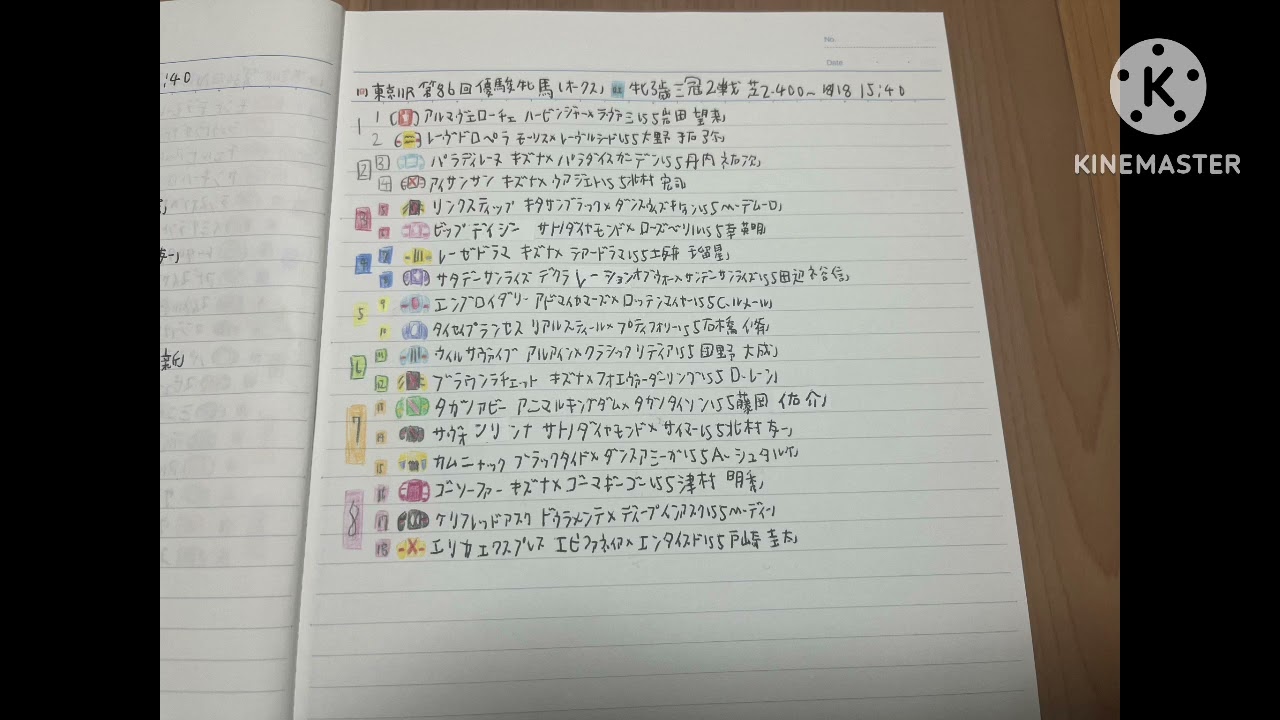 :40
新
No.
Date
東京11R 第86回優駿牝馬(オークス) 牝3歳 三冠2戦 芝2.400m 18 15:40
1 1 アルマヴェローチェ ハービンジャー×ラクアミ 55 岩田 望来
2 レーヴドロペラ モーリス×レーヴルシード 55 大野 拓弥
2 3 パラディレーヌ キズナ×パラダイスガーデン 55 丹内 祐次
4 アイサンサン キズナ×ウアジェト 55 北村 宏司
3 5 リンクスティップ キタサンブラック×ダンスウィズキトゥン 55 M.デムーロ
6 ビップデイジー サトノダイヤモンド×ローズベリル 55 幸英明
4 7 レーゼドラマ キズナ×シアードラマ 55 坂井 瑠星
8 サタデーサンライズ デクラレーションオブウォー×サンデーサンライズ 55 田辺 裕信
5 9 エンブロイダリー アドマイヤマーズ×ロッテンマイヤー 55 C.ルメール
10 タイセイプランセス リアルスティール×プロティフォリー 55 石橋 脩
11 ウィルサヴァイブ アルアイン×クラシックリディア 55 団野 大成
6 12 ブラウンラチェット キズナ×フォエヴァーダーリング 55 D.レーン
13 タガノアビー アニマルキングダム×タガノタイソン 55 藤岡 佑介
7 14 サヴォンリンナ サトノダイヤモンド×サイマー 55 北村 友一
15 カムニャック ブラックタイド×ダンスアミーガ 55 A.シュタルケ
16 ゴーソーファー キズナ×ゴーマギーゴー 55 津村 明秀
8 17 ケリフレッドアスク ドゥラメンテ×ディープインアスク 55 M.ディー
18 エリカエクスプレス エピファネイア×エンタイスド 55 戸崎 圭太
K
KINEMASTER